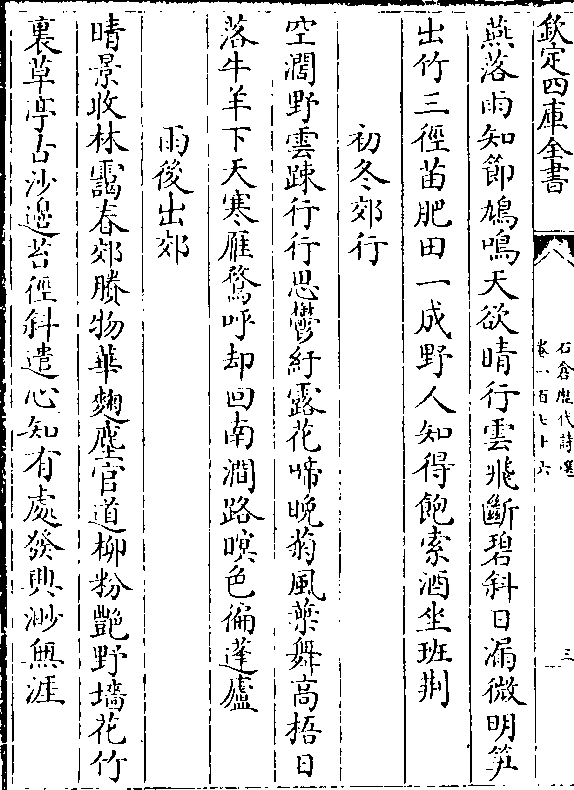 欽定四庫全書
石倉歷代詩選
卷一百七十六
三
燕落雨知節鳩鳴天欲晴行雲飛斷碧斜日漏微明笋
出竹三徑苗肥田一成野人知得飽索酒坐班荆
初冬郊行
空濶野雲踈行行思鬱紆露花啼晚菊風葉舞高梧日
落牛羊下天寒雁鶩呼却回南澗路暝色徧蓬廬
雨後出郊
晴景收林靄春郊勝物華麴塵官道柳粉艷野墻花竹
裏草亭古沙邊苔徑斜遣心知有處發興渺無涯